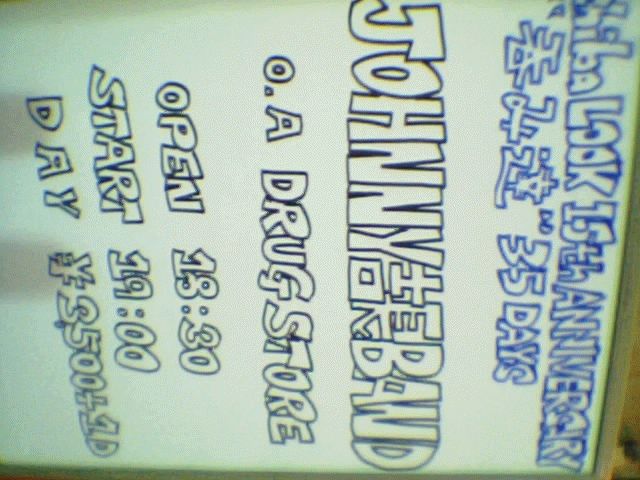 Chiba LOOK 15th ANNIVERSARY
35 DAYS
JOHNNY吉長BAND
O.A DRUG STORE
OPEN 18:30
START 19:00
DAY ¥3,500+1D